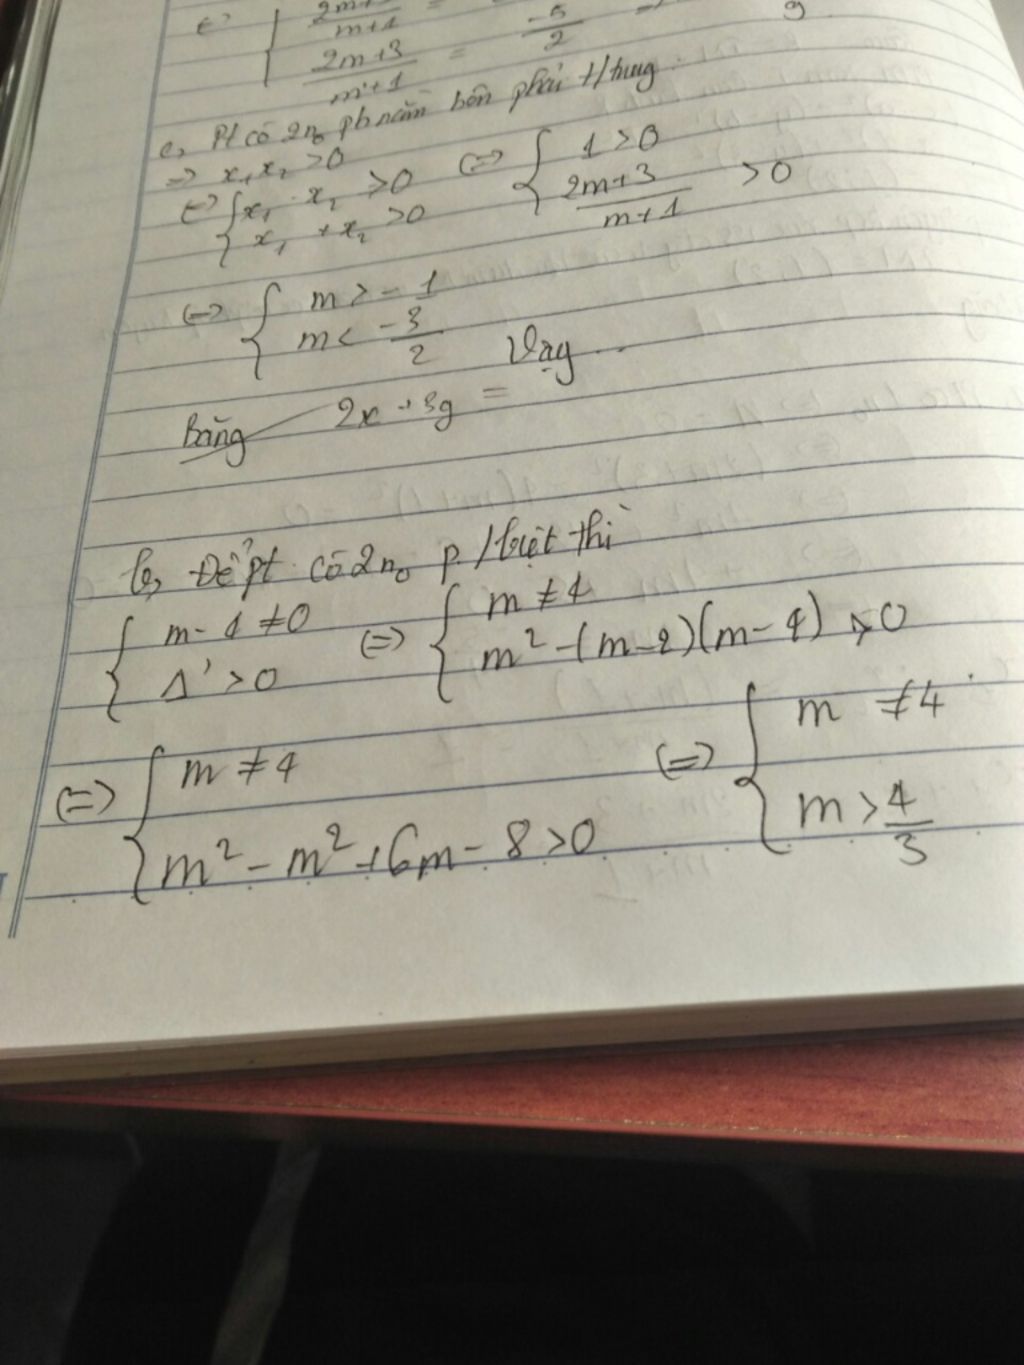 <=> { 2m+3/m+1 =
2m+3/m+1 = -5/2
c, Pt có 2n₀ pb nằm bên phải t/trung
=> x₁x₂ > 0
<=> { x₁ . x₂ > 0 <=> { 1 > 0
x₁ + x₂ > 0 2m+3/m+1 > 0
<=> { m > -1
m < -3/2 Vạy ...
Bằng 2x + 3y =
b, Để pt có 2n₀ p/biệt thì
{ m - 4 ≠ 0 <=> { m ≠ 4
Δ' > 0 m² - (m-2)(m-4) > 0
<=> { m ≠ 4 <=> { m ≠ 4
m² - m² + 6m - 8 > 0 m > 4/3